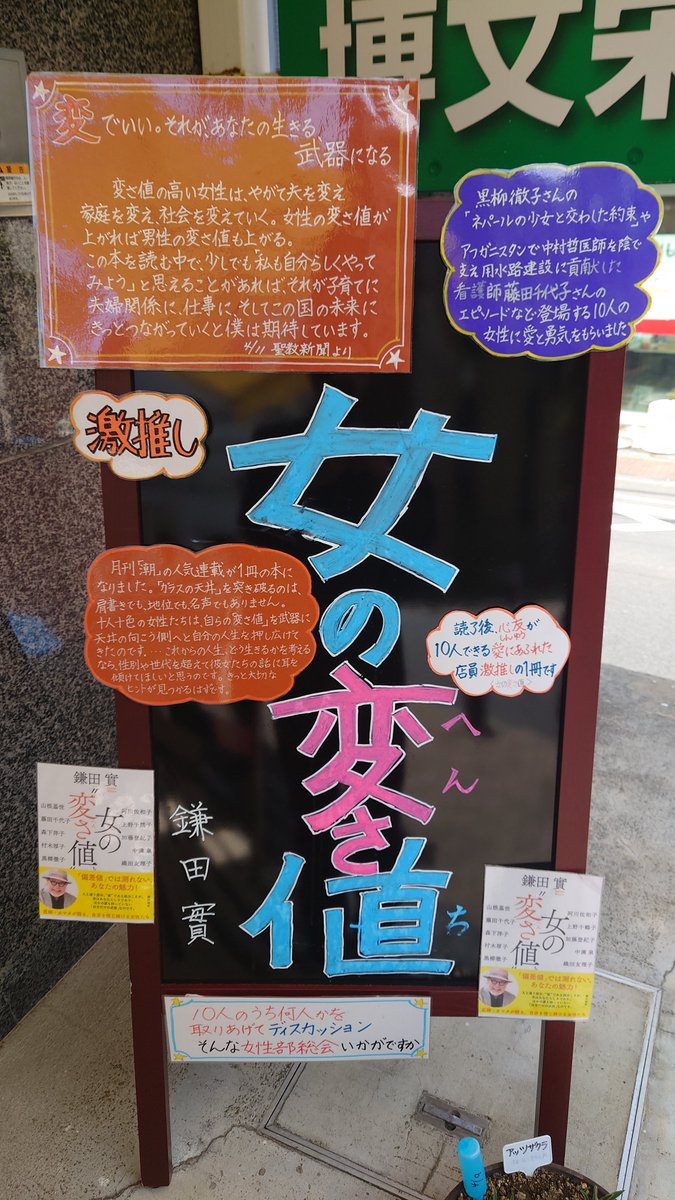 博文栄
変でいい。それが、あなたの生きる
武器になる
変さ値の高い女性は、やがて夫を変え
家庭を変え、社会を変えていく。女性の変さ値が
上がれば男性の変さ値も上がる。
この本を読む中で、少しでも「私も自分らしくやって
みよう」と思えることがあれば、それが子育てに
夫婦関係に、仕事に、そしてこの国の未来に
きっとつながっていくと僕は期待しています。
4/11 聖教新聞より
黒柳徹子さんの
「ネパールの少女と交わした約束」や
アフガニスタンで中村哲医師を陰で
支え用水路建設に貢献した
看護師藤田千代子さんの
エピソードなど登場する10人の
女性に愛と勇気をもらいました
激推し
女の変さ値
へん
ち
鎌田實
月刊「潮」の人気連載が1冊の本に
なりました。「ガラスの天井」を突き破るのは、
肩書きでも、地位でも、名声でもありません。
十人十色の女性たちは、自らの「変さ値」を武器に
天井の向こう側へと自分の人生を押し広げて
きたのです。…これからの人生、どう生きるかを考える
なら、性別や世代を超えて彼女たちの話に耳を
傾けてほしいと思うのです。きっと大切な
ヒントが見つかるはずです。
読了後、心友が
しんゆう
10人できる愛にあふれた
店員激推しの1冊です
鎌田 實
女の
"変さ値"
山根基世
藤田千代子
森下洋子
村木厚子
黒柳徹子
阿川佐和子
上野千鶴子
加藤登紀子
中満泉
織田友理子
「偏差値」では測れない、
あなたの魅力!
鎌田 實
女の
"変さ値"
山根基世
藤田千代子
森下洋子
村木厚子
黒柳徹子
阿川佐和子
上野千鶴子
加藤登紀子
中満泉
織田友理子
「偏差値」では測れない、
あなたの魅力!
10人のうち何人かを
取りあげてディスカッション
そんな女性部総会いかがですか
アッツザクラ